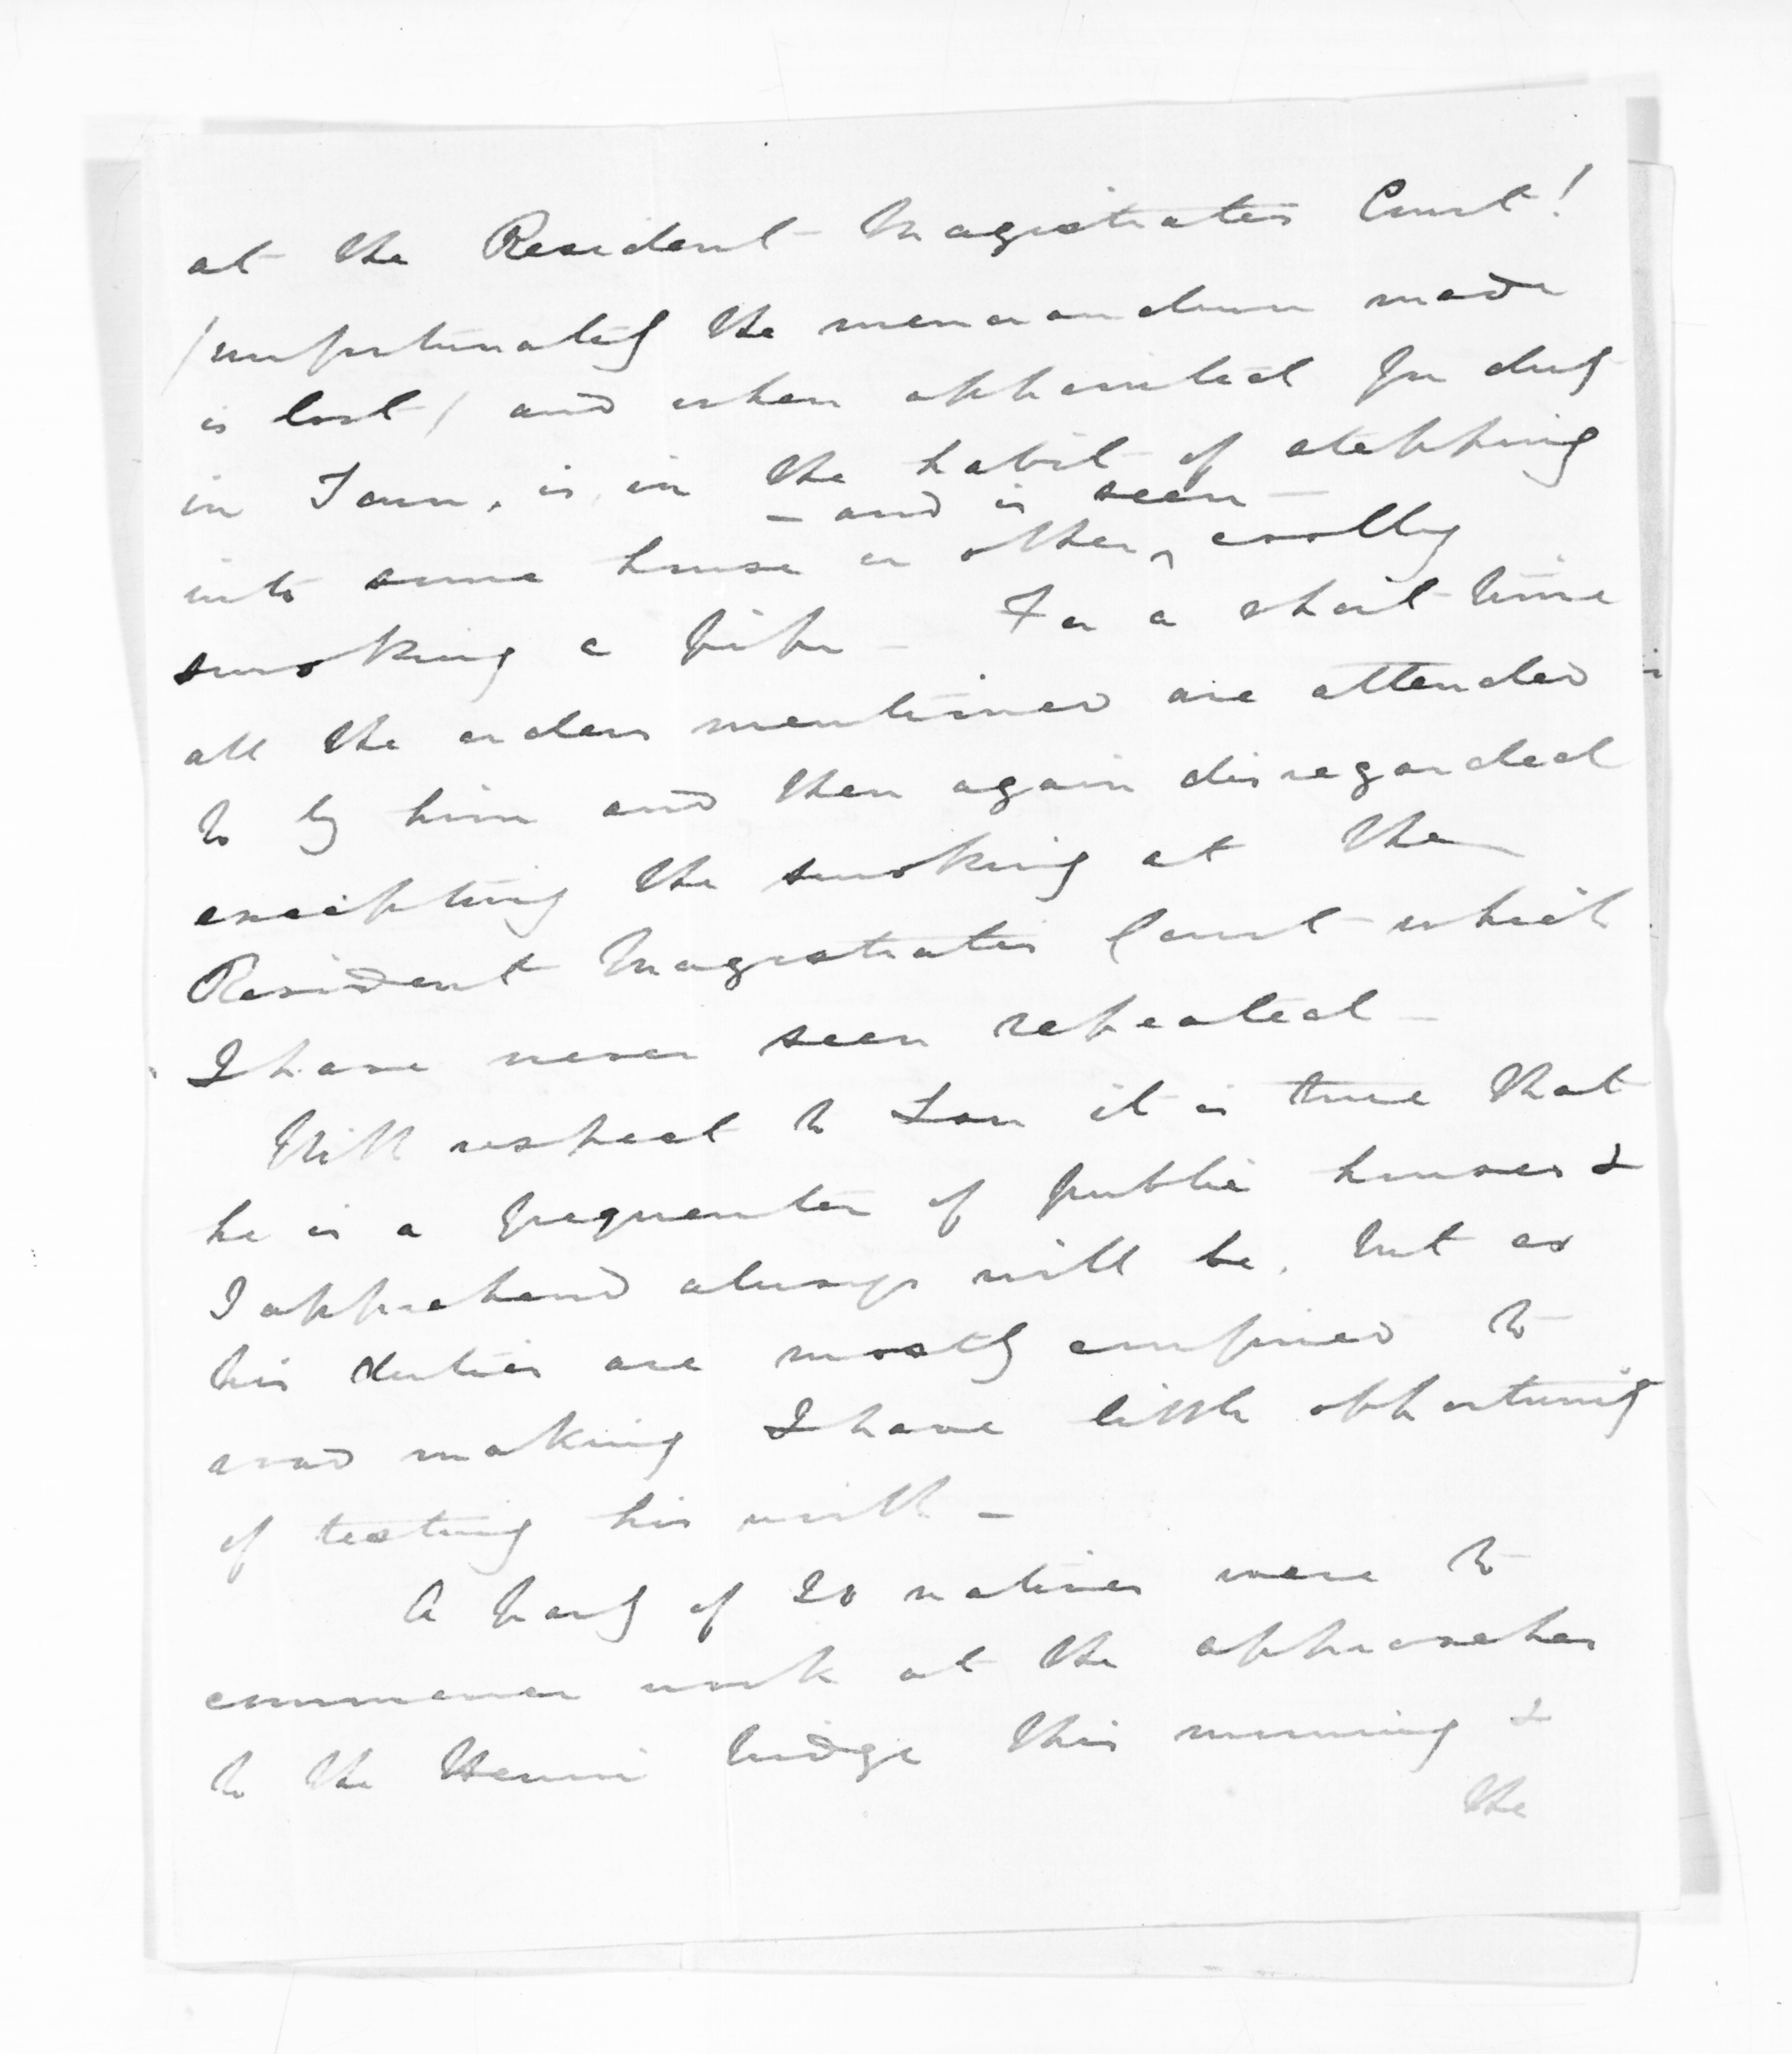 at the Resident Magistrates Court!
(unfortunately the memorandum made
is lost) and when appointed for duty
in Town, is, in the habit of stepping
- and is seen -
into some house or other, coolly
smoking a pipe - For a short time
all the orders mentioned are attended
to by him and then again disregarded
excepting the smoking at the
Resident Magistrates Court which
I have never seen repeated -
With respect to Law it is true that
he is a frequenter of public houses &
I apprehend always will be, but as
his duties are mostly confined to
road making I have little opportunity
of testing his
A party of 20 natives were to
commence work at the approaches
to the Henui bridge this morning &
the